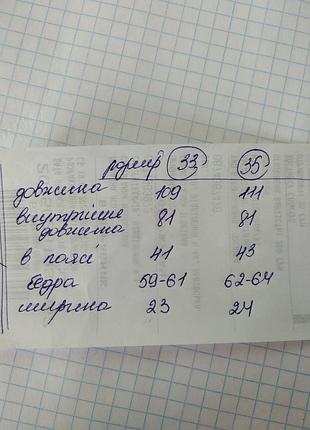 розмір 33 35
довжина 109 111
внутрішнє
довжина 81 81
в поясі 41 43
бедра 59-61 62-64
ширина 23 24